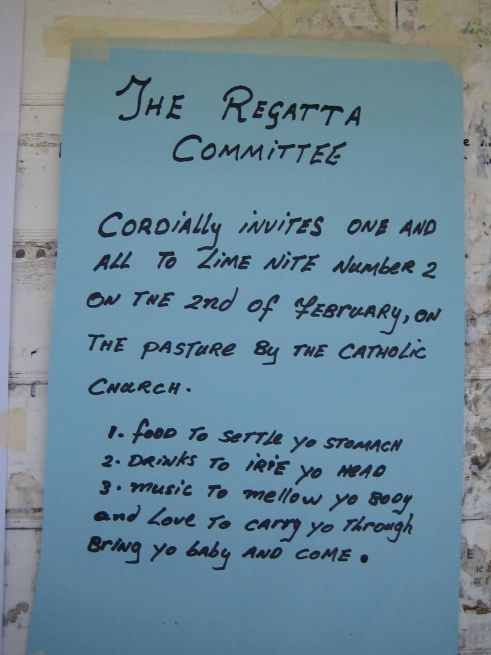 THE REGATTA
COMMITTEE
CORDIAlly iNVITES ONE AND
ALL TO LIME NITE Number 2
ON THE 2nd of FEbRUARY, ON
THE PASTURe By THE CATHOLIC
CHURCH.
1. fOOD TO SeTTLe yo STOMACH
2. DRINKS TO iRiE yo HEAD
3. music To mellow yo BODy
and Love To carry yo Through
Bring yo baby AND COME.